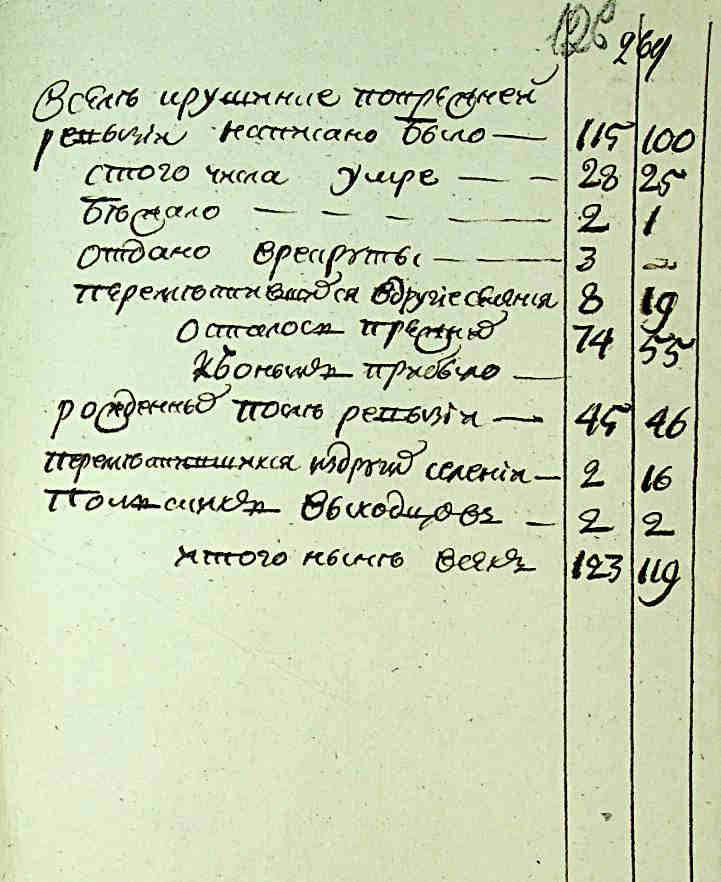 126 264
Всемъ Крушние попрежней
ревизіи написано было — 115 100
стого числа умре — — 28 25
бѣжало — — — — 2 1
отдано врекруты — 3 —
переместившихся вдругие селения 8 19
осталося прежних 74 55
Кооным прибыло —
рожденных после ревизіи — 45 46
переместившихся издругих селеніи — 2 16
Польских выходцовъ — 2 2
итого ныне всехъ 123 119